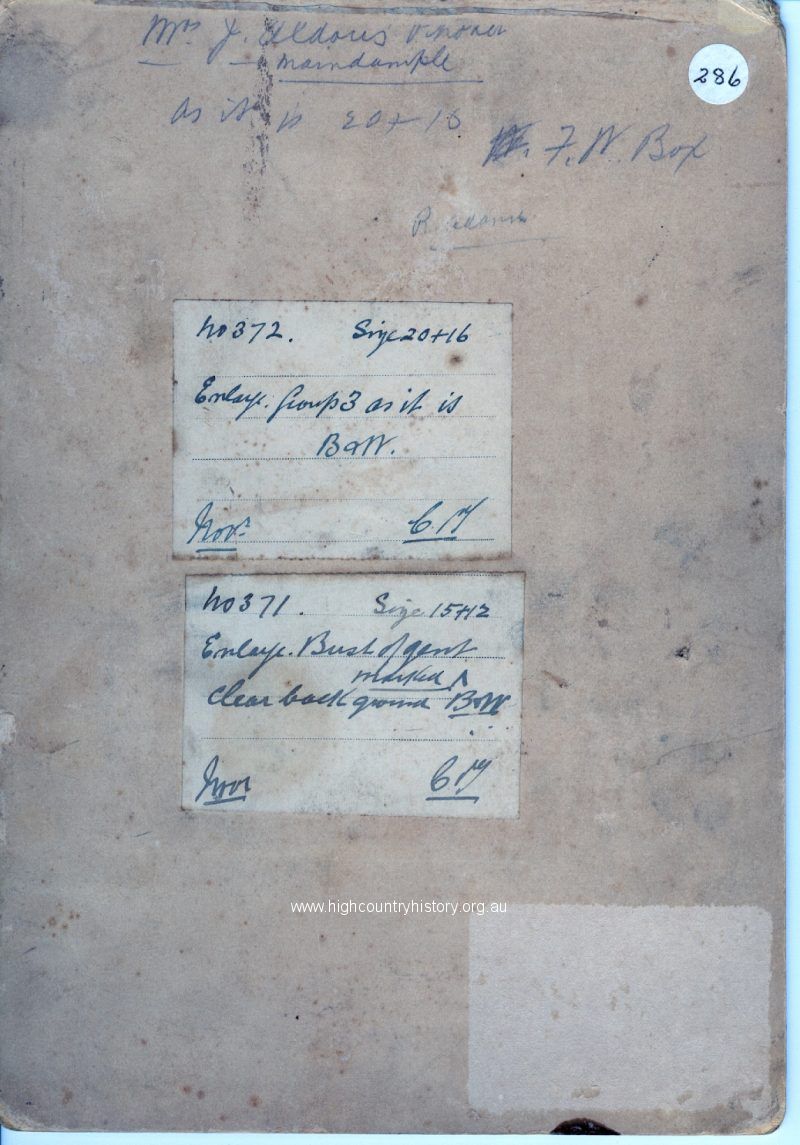 Mrs J. Aldous
Maindample
286
as it is 20+16
F. W. Box
R. Adams
No 372. Size 20+16
Enlage. Group 3 as it is
B&W.
Novr
No 371. Size 15+12
Enlage. Bust of gent
marked ^
clear back ground B&W
Novr
www.highcountryhistory.org.au